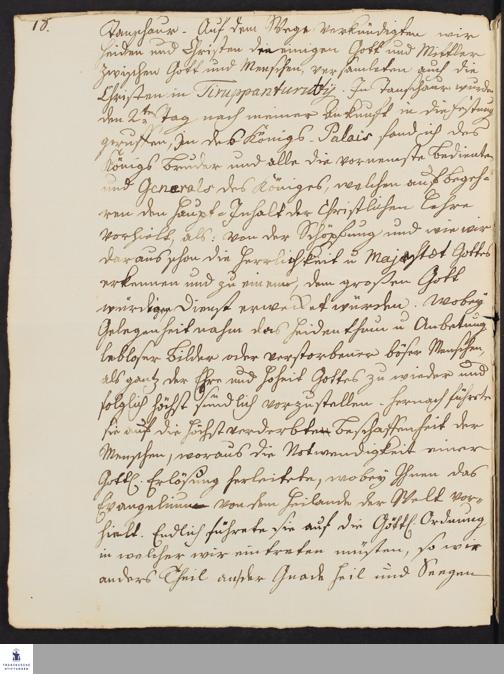 18.
Tanschaur. Auf dem Wege verkündigten wir
Heiden und Christen den einigen Gott und Mittler
zwischen Gott und Menschen, versamleten auch die
Christen in Tiruppanturutty. In Tanschaur wurde
den 2ten Tag nach meiner Ankunft in die Festung
geruffen, In des Königs Palais fand ich des
Königs Bruder und alle die vornemste Bediente
und Generals des Königes, welchen auf Begeh-
ren den Haupt-Inhalt der Christlichen Lehre
vorhielt, als: von der Schöpfung und wie wir
daraus schon die Herrlichkeit u Majestæt Gottes
erkennen und zu einem, dem großen Gott
würdigen Dienst erwecket würden. Wobey
Gelegenheit nahm das Heidenthum u Anbetung
lebloser Bilder oder verstorbener böser Menschen,
als gantz der Ehre und Hoheit Gottes zu wieder und
folglich höchst sündlich vorzustellen. Hernach führete
sie auf die höchst verderbten Beschaffenheit der
Menschen, woraus die Nothwendigkeit einer
Göttl. Erlösung herleitete, wobey Ihnen das
Evangelium von dem Heilande der Welt vor-
hielt. Endlich führete sie auf die Göttl. Ordnung
in welcher wir eintreten müsten, so wir
anders Theil an der Gnade Heil und Seegen
FRANCKESCHE
STIFTUNGEN